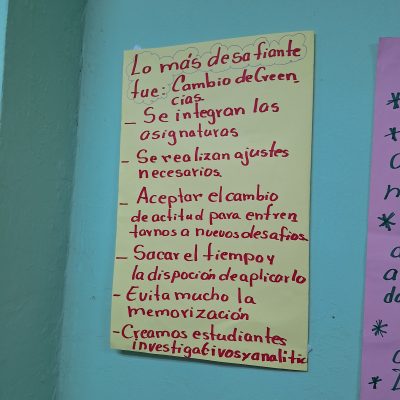 Lo más desafiante
fue: Cambio de Creen
cias.
_ Se integran las
asignaturas
_ Se realizan ajustes
necesarios.
_ Aceptar el cambio
de actitud para enfren
tarnos a nuevos desafios
_ Sacar el tiempo y
la dispoción de aplicarlo
- Evita mucho la
memorización
- Creamos estudiantes
investigativos y analitic